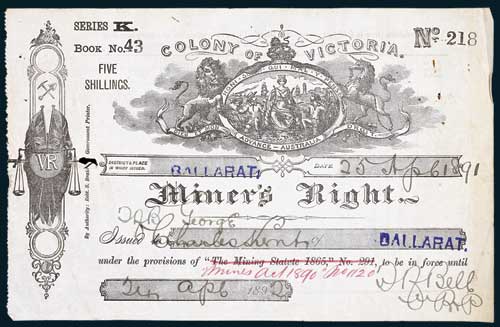 SERIES K.
BOOK NO. 43
FIVE
SHILLINGS.
COLONY OF VICTORIA.
No. 218
HONI SOIT QUI MAL Y PENSE
DIEU ET MON DROIT
ADVANCE AUSTRALIA
VR
By Authority: Government Printer.
DISTRICT & PLACE
IN WHICH ISSUED.
BALLARAT.
DATE 25 Apl 1891
Miner's Right.
George
Issued Charles Kent of BALLARAT.
under the provisions of "The Mining Statute 1865," No. 291, to be in force until
Mines Act 1890 No 1120
Apl 1892
Bell